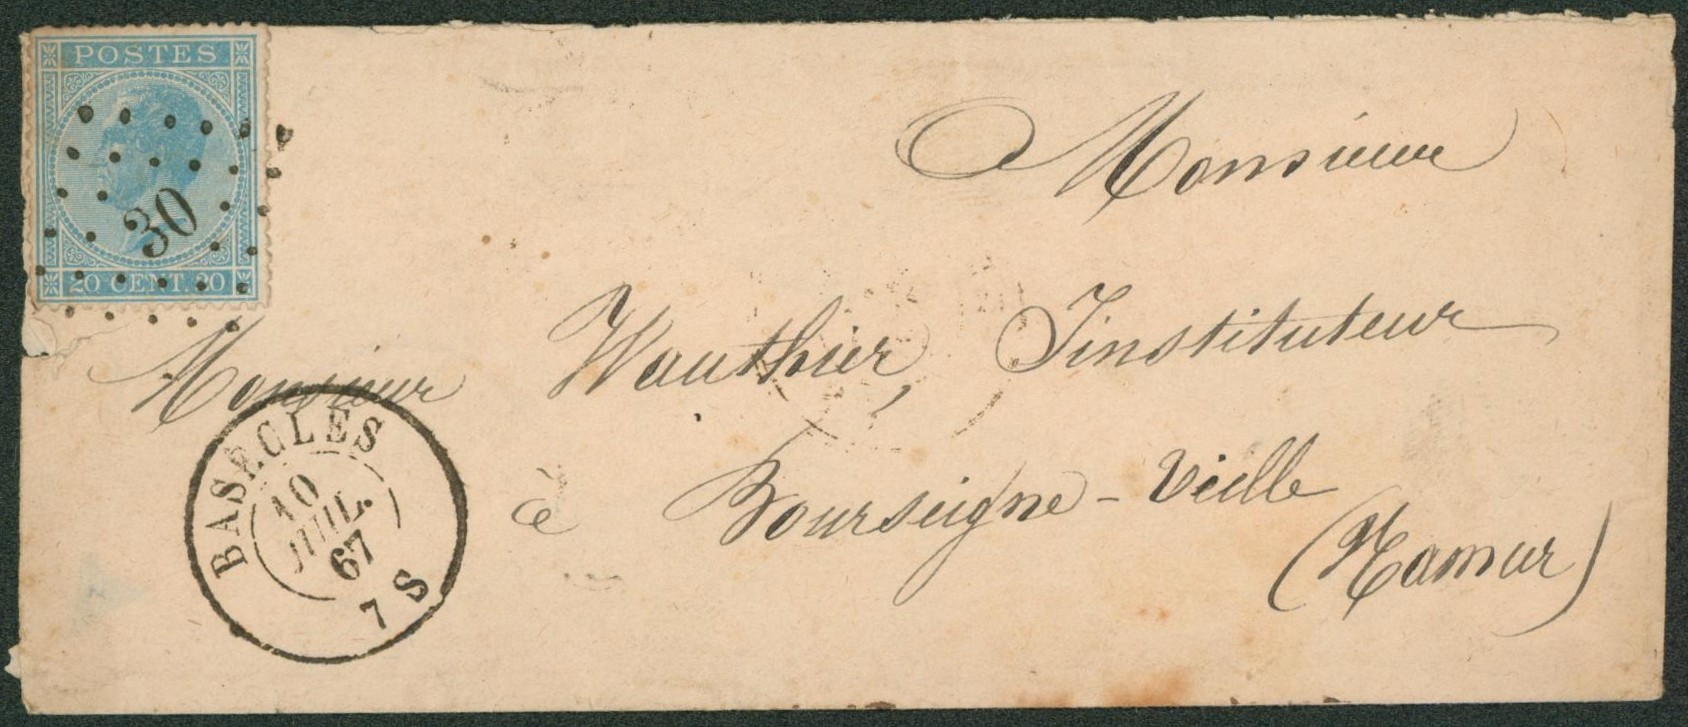 POSTES
30
20 CENT. 20
Monsieur
Monsieur Wauthier Jinstituteur
à Bourseigne-Vieille
(Namur)
BASÈCLES
10
JUIL.
67
7 S